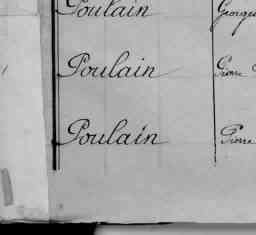 Poulain
Poulain Pierre
Poulain Pierre